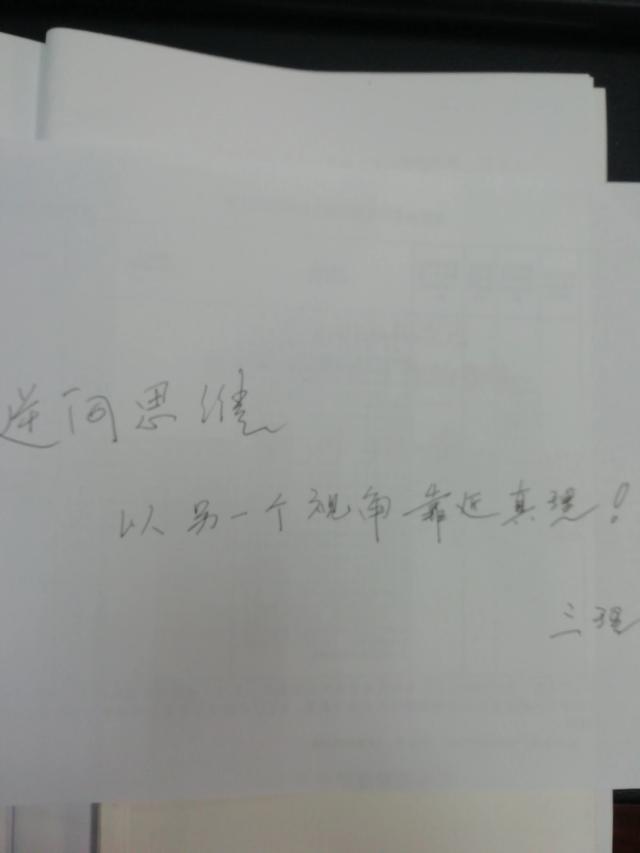 逆向思维
以另一个视角靠近真理!
三理